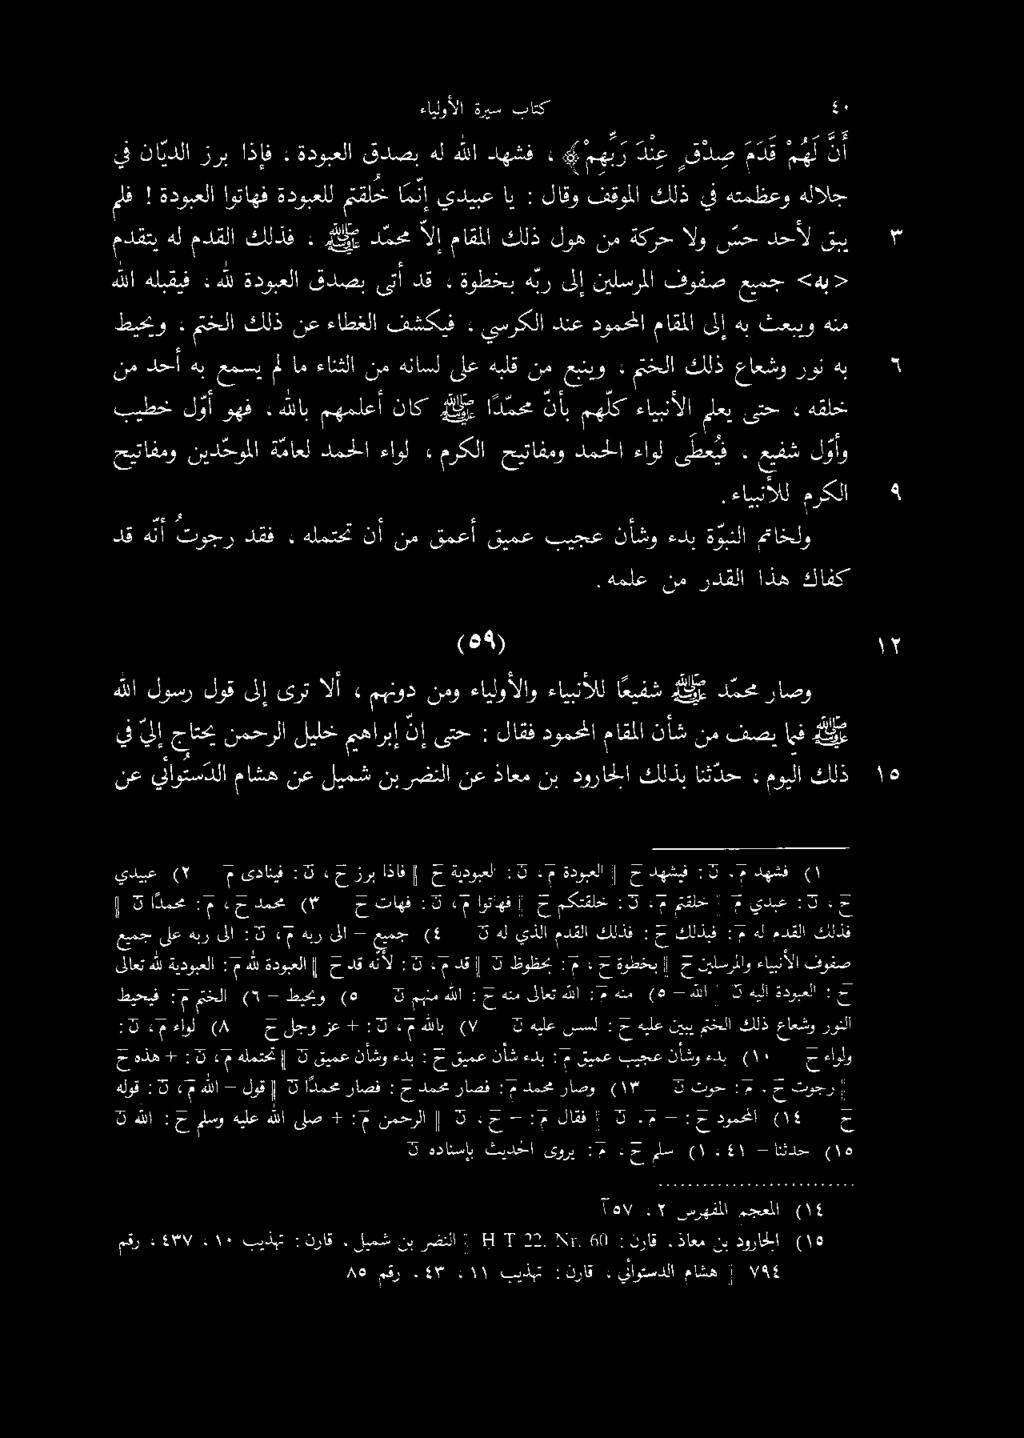 ٤٠ كتاب سيرة الأولياء
أَنَّ لَهُمْ قَدَمَ صِدْقٍ عِنْدَ رَبِّهِمْ﴾ ، فشهد الله له بصدق العبودة ، فإذا برز الديّان في
جلاله وعظمته في ذلك الموقف وقال : يا عبيدي إنّما خُلقتم للعبودة فهاتوا العبودة ! فلم
٣ يبق لأحد حسّ ولا حركة من هول ذلك المقام إلاّ محمّد ﷺ ، فذلك القدم له يتقدم
<به> جميع صفوف المرسلين إلى ربّه بخطوة ، قد أتى بصدق العبودة لله ، فيقبله الله
منه ويبعث به إلى المقام المحمود عند الكرسي ، فيكشف الغطاء عن ذلك الختم ، ويحيط
٦ به نور وشعاع ذلك الختم ، وينبع من قلبه على لسانه من الثناء ما لم يسمع به أحد من
خلقه ، حتى يعلم الأنبياء كلّهم بأنّ محمّدًا ﷺ كان أعلمهم بالله ، فهو أوّل خطيب
وأوّل شفيع ، فيُعطَى لواء الحمد ومفاتيح الكرم ، لواء الحمد لعامّة الموحّدين ومفاتيح
٩ الكرم للأنبياء .
ولخاتم النبوّة بدء وشأن عجيب عميق أعمق من أن تحتمله ، فقد رجوتُ أنّه قد
كفاك هذا القدر من علمه .
١٢ (٥٩)
وصار محمّد ﷺ شفيعًا للأنبياء والأولياء ومن دونهم ، ألا ترى إلى قول رسول الله
ﷺ فيما يصف من شأن المقام المحمود فقال : حتى إنّ إبراهيم خليل الرحمن يحتاج إليّ في
١٥ ذلك اليوم ، حدّثنا بذلك الجارود بن معاذ عن النضر بن شميل عن هشام الدَستُوائي عن
١) فشهد م ، ن : فيشهد خ ‖ العبودة م ، ن : لعبودية خ ‖ فاذا برز خ ، ن : فينادى م ٢) عبيدي
خ ، ن : عبدي م ‖ خلقتم م ، ن : خلقتكم خ ‖ فهاتوا م ، ن : فهات خ ٣) محمد خ ، م : محمدًا ن ‖
فذلك القدم له م : فبذلك خ : فذلك القدم الذي له ن ٤) جميع – الى ربه م ، ن : الى ربه على جميع
صفوف الأنبياء والمرسلين خ ‖ بخطوة خ ، م : بحظوظ ن ‖ قد م ، ن : لأنه قد خ ‖ العبودة لله م : العبودية لله تعالى
خ : العبودة اليه ن ‖ الله – ٥) منه م : الله تعالى منه خ : الله منهم ن ٥) ويحيط – ٦) الختم م : فيحيط
النور وشعاع ذلك الختم يبين عليه خ : عليه ن ٧) بالله م ، ن : + عز وجل خ ٨) لواء م ، ن :
ولواء خ ١٠) بدء وشأن عجيب عميق م : بدء شأن عميق خ : بدء وشأن عميق ن ‖ تحتمله م ، ن : + هذه خ
‖ رجوت خ ، م : حوت ن ١٣) وصار محمد م : فصار محمد خ : فصار محمدًا ن ‖ قول – الله م ، ن : قوله
خ ١٤) المحمود خ : – م ، ن ‖ فقال م : – خ ، ن ‖ الرحمن م : + صلى الله عليه وسلم خ : الله ن
١٥) حدثنا – ٤١ ، ١) سلم خ ، م : يروى الحديث بإسناده ن
١٤) المعجم المفهرس ٢ ، ٥٧آ
١٥) الجارود بن معاذ ، قارن : HT 22, Nr. 60 ‖ النضر بن شميل ، قارن : تهذيب ١٠ ، ٤٣٧ ، رقم
٧٩٤ ‖ هشام الدستوائي ، قارن : تهذيب ١١ ، ٤٣ ، رقم ٨٥